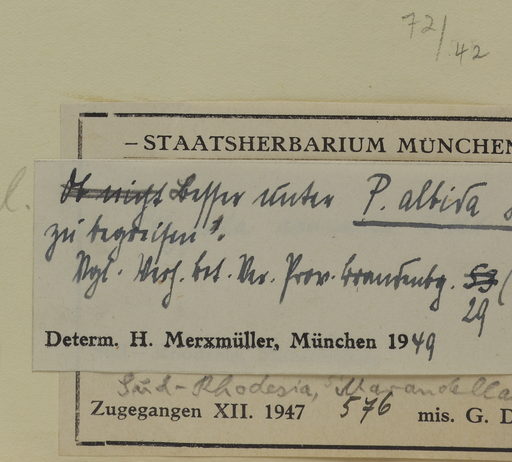 72/42
– STAATSHERBARIUM MÜNCHEN
l.
Ob nicht besser unter P. albida
zu begreifen?.
Vgl. Verh. bot. Ver. Prov. Brandenbg. 53 (
29
Determ. H. Merxmüller, München 1949
Süd-Rhodesia, Marandella
Zugegangen XII. 1947 576 mis. G. D